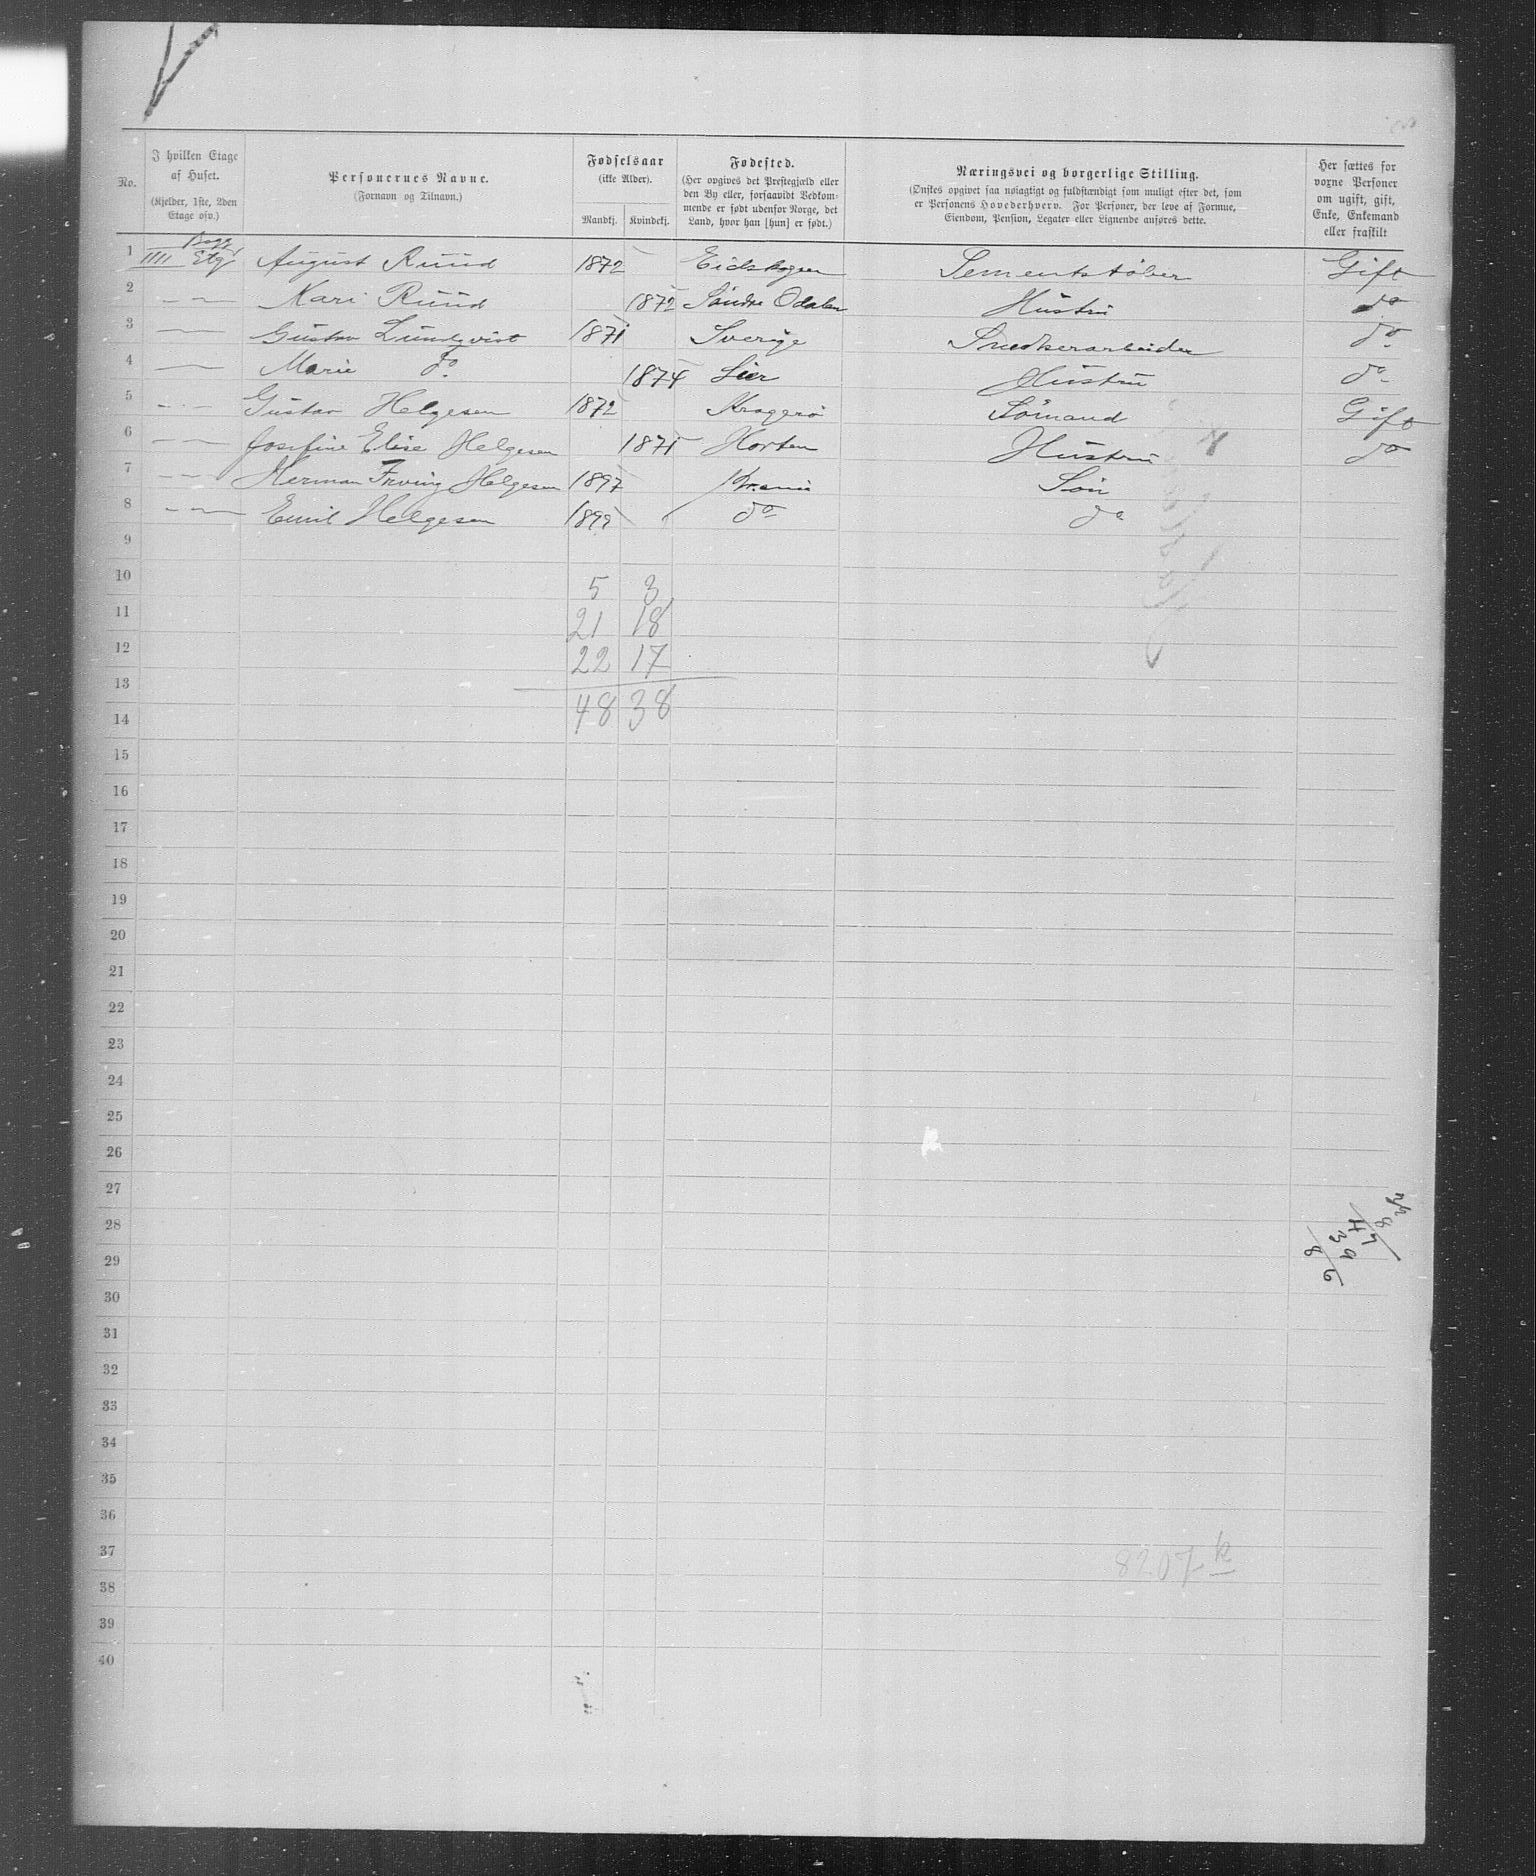 No.
I hvilken Etage af Huset.
(Kjelder, 1ste, 2den Etage osv.)
Personernes Navne.
(Fornavn og Tilnavn.)
Fødselsaar
(ikke Alder).
Mandkj. Kvindekj.
Fødested.
(Her opgives det Prestegjæld eller den By eller, forsaavidt Vedkommende er født udenfor Norge, det Land, hvor han [hun] er født.)
Næringsvei og borgerlige Stilling.
(Ønskes opgivet saa nøiagtig og fuldstændigt som muligt efter det, som er Personens Hovederhverv. For Personer, der leve af Formue, Eiendom, Pension, Legater eller Lignende anføres dette.
Her sættes for voxne Personer om ugift, gift, Enke, Enkemand eller fraskilt
1 IIII Etg August Ruud 1872 Eidskogen Sementstøber Gift
2 — — Kari Ruud 1872 Søndre Odalen Hustru do
3 — — Gustav Lundqvist 1871 Sverige Snedkerarbeider do
4 — — Marie do 1874 Lier Hustru do
5 — — Gustav Helgesen 1872 Kragerø Sømand Gift
6 — — Josefine Elise Helgesen 1871 Horten Hustru do
7 — — Herman Irving Helgesen 1897 Krania Søn
8 — — Emil Helgesen 1899 do do
9
10 5 3
11 21 18
12 22 17
13
14 48 38
15
16
17
18
19
20
21
22
23
24
25
26
27
28
29
30
31
32
33
34
35
36
37 8207 k
38
39
40